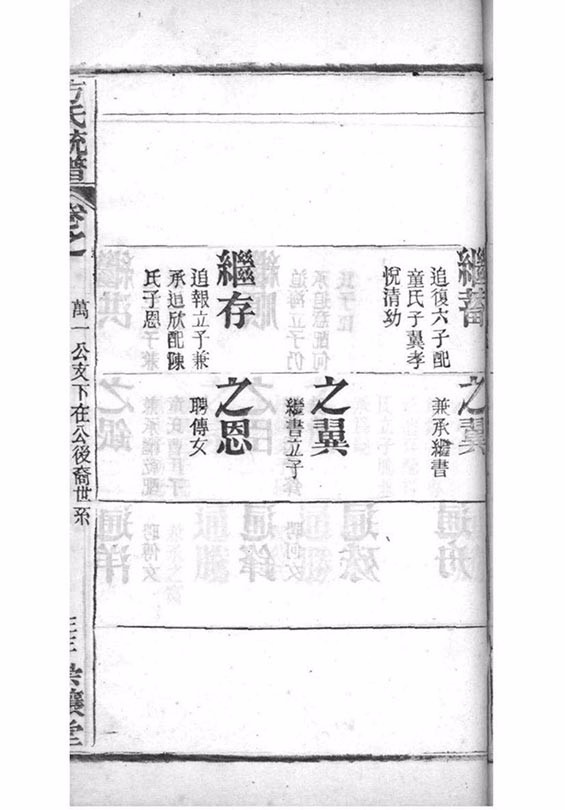 繼
追復六子配
童氏子翼孝
悅清功
繼存
追報立子兼
承追欣配陳
氏子恩
之翼
兼承繼書
之翼
繼書立子
之恩
聘傳女
方氏統譜
卷之
萬一公支下在公後裔世系
堂